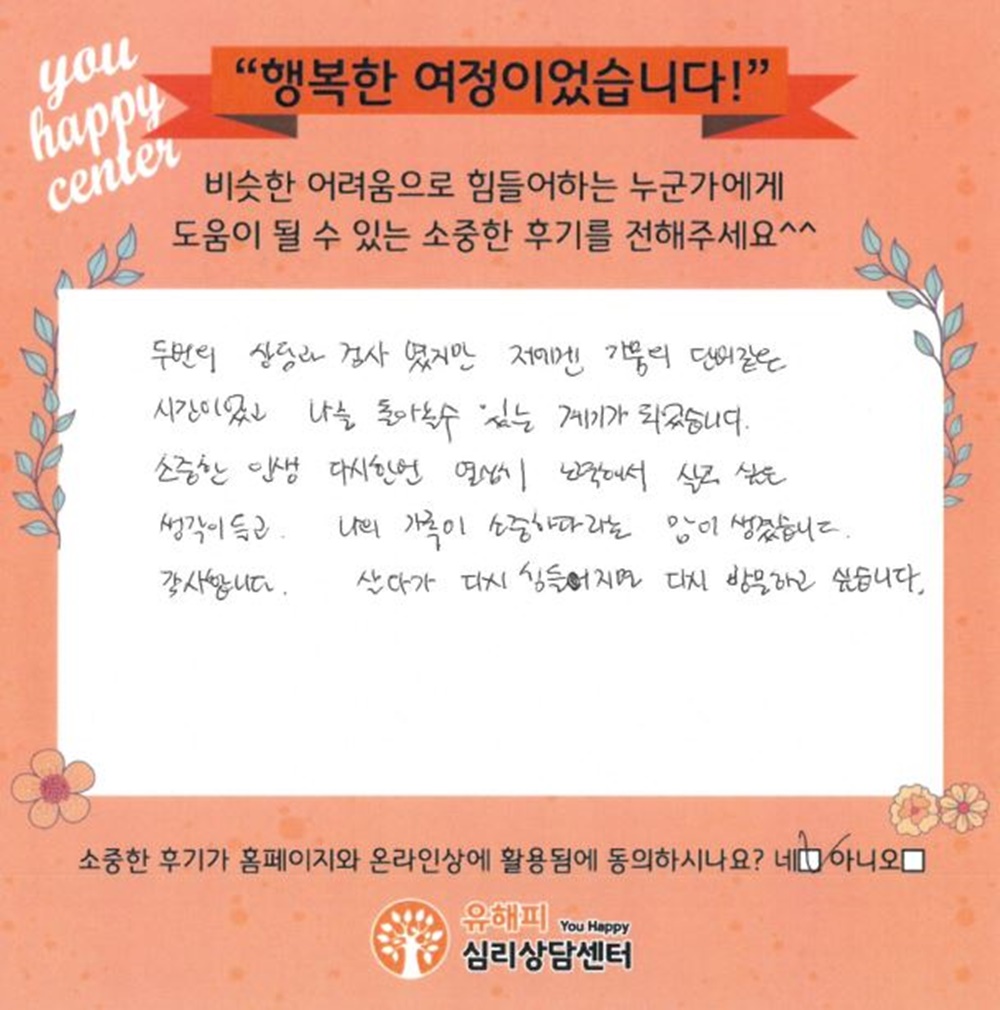 you
happy
center
“행복한 여정이었습니다!”
비슷한 어려움으로 힘들어하는 누군가에게
도움이 될 수 있는 소중한 후기를 전해주세요^^
두번의 상담과 검사 였지만 저에겐 가뭄의 단비같은
시간이였고 나를 돌아볼수 있는 계기가 되었습니다.
소중한 인생 다시한번 열심히 노력해서 살고 싶은
생각이 들고. 나의 가족이 소중하다라는 맘이 생겼습니다.
감사합니다. 살다가 다시 힘들어지면 다시 방문하고 싶습니다.
소중한 후기가 홈페이지와 온라인상에 활용됨에 동의하시나요? 네 아니오
유해피 You Happy
심리상담센터